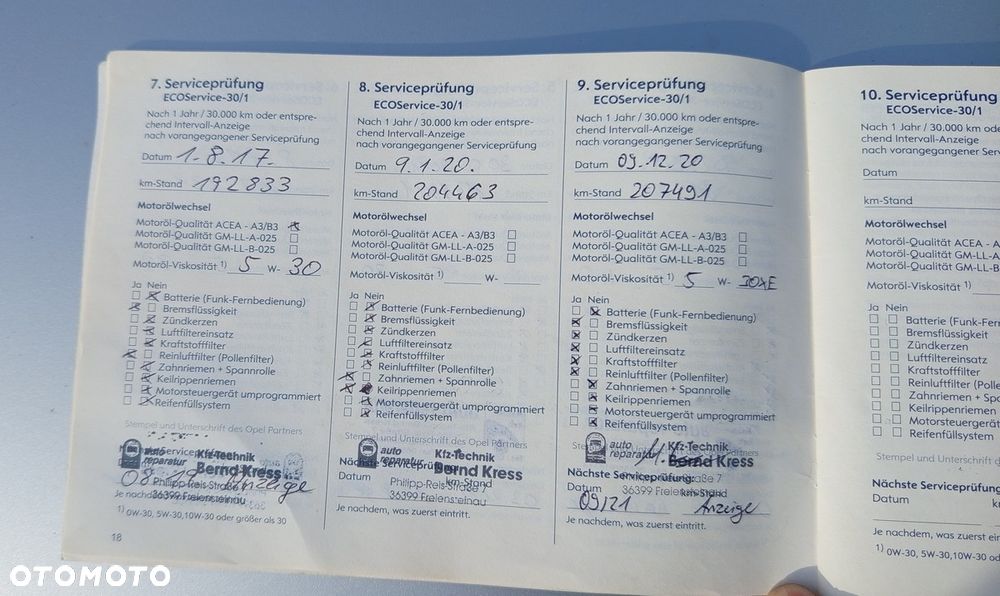 7. Serviceprüfung
ECOService-30/1
Nach 1 Jahr / 30.000 km oder entspre-
chend Intervall-Anzeige
nach vorangegangener Serviceprüfung
Datum 1.8.17.
km-Stand 192833
Motorölwechsel
Motoröl-Qualität ACEA - A3/B3
Motoröl-Qualität GM-LL-A-025
Motoröl-Qualität GM-LL-B-025
Motoröl-Viskosität 1) 5 W- 30
Ja Nein
Batterie (Funk-Fernbedienung)
Bremsflüssigkeit
Zündkerzen
Luftfiltereinsatz
Kraftstofffilter
Reinluftfilter (Pollenfilter)
Zahnriemen + Spannrolle
Keilrippenriemen
Motorsteuergerät umprogrammiert
Reifenfüllsystem
Stempel und Unterschrift des Opel Partners
auto reparatur
Kfz-Technik
Bernd Kress
Philipp-Reis-Straße 7
36399 Freiensteinau
Anzeige
Je nachdem,
1) 0W-30, 5W-30,10W-30 oder größer als 30
18
8. Serviceprüfung
ECOService-30/1
Nach 1 Jahr / 30.000 km oder entspre-
chend Intervall-Anzeige
nach vorangegangener Serviceprüfung
Datum 9.1.20.
km-Stand 204463
Motorölwechsel
Motoröl-Qualität ACEA - A3/B3
Motoröl-Qualität GM-LL-A-025
Motoröl-Qualität GM-LL-B-025
Motoröl-Viskosität 1) W-
Ja Nein
Batterie (Funk-Fernbedienung)
Bremsflüssigkeit
Zündkerzen
Luftfiltereinsatz
Kraftstofffilter
Reinluftfilter (Pollenfilter)
Zahnriemen + Spannrolle
Keilrippenriemen
Motorsteuergerät umprogrammiert
Reifenfüllsystem
Stempel und Unterschrift des Opel Partners
auto reparatur
Kfz-Technik
Bernd Kress
Nächste Serviceprüfung:
Datum km-Stand
Philipp-Reis-Straße 7
36399 Freiensteinau
Je nachdem, was zuerst eintritt.
9. Serviceprüfung
ECOService-30/1
Nach 1 Jahr / 30.000 km oder entspre-
chend Intervall-Anzeige
nach vorangegangener Serviceprüfung
Datum 09.12.20
km-Stand 207491
Motorölwechsel
Motoröl-Qualität ACEA - A3/B3
Motoröl-Qualität GM-LL-A-025
Motoröl-Qualität GM-LL-B-025
Motoröl-Viskosität 1) 5 W-
Ja Nein
Batterie (Funk-Fernbedienung)
Bremsflüssigkeit
Zündkerzen
Luftfiltereinsatz
Kraftstofffilter
Reinluftfilter (Pollenfilter)
Zahnriemen + Spannrolle
Keilrippenriemen
Motorsteuergerät umprogrammiert
Reifenfüllsystem
Stempel und Unterschrift des Opel Partners
auto reparatur
Kfz-Technik
Bernd Kress
Nächste Serviceprüfung:
Datum km-Stand
36399
09/21 Anzeige
Je nachdem, was zuerst eintritt.
10. Serviceprüfung
ECOService-30/1
Nach 1 Jahr / 30.000 km oder
chend Intervall-Anzeige
nach vorangegangener
Datum
km-Stand
Motorölwechsel
Motoröl-Qualität ACEA - A
Motoröl-Qualität GM-LL-A
Motoröl-Qualität GM-LL-B
Motoröl-Viskosität 1)
Ja Nein
Batterie (Funk-Fern
Bremsflüssigkeit
Zündkerzen
Luftfiltereinsatz
Kraftstofffilter
Reinluftfilter (Pollenf
Zahnriemen + Span
Keilrippenriemen
Motorsteuergerät
Reifenfüllsystem
Stempel und Unterschrift d
Nächste Serviceprüfung
Datum
Je nachdem, was zuerst
1) 0W-30, 5W-30,10W-30
OTOMOTO